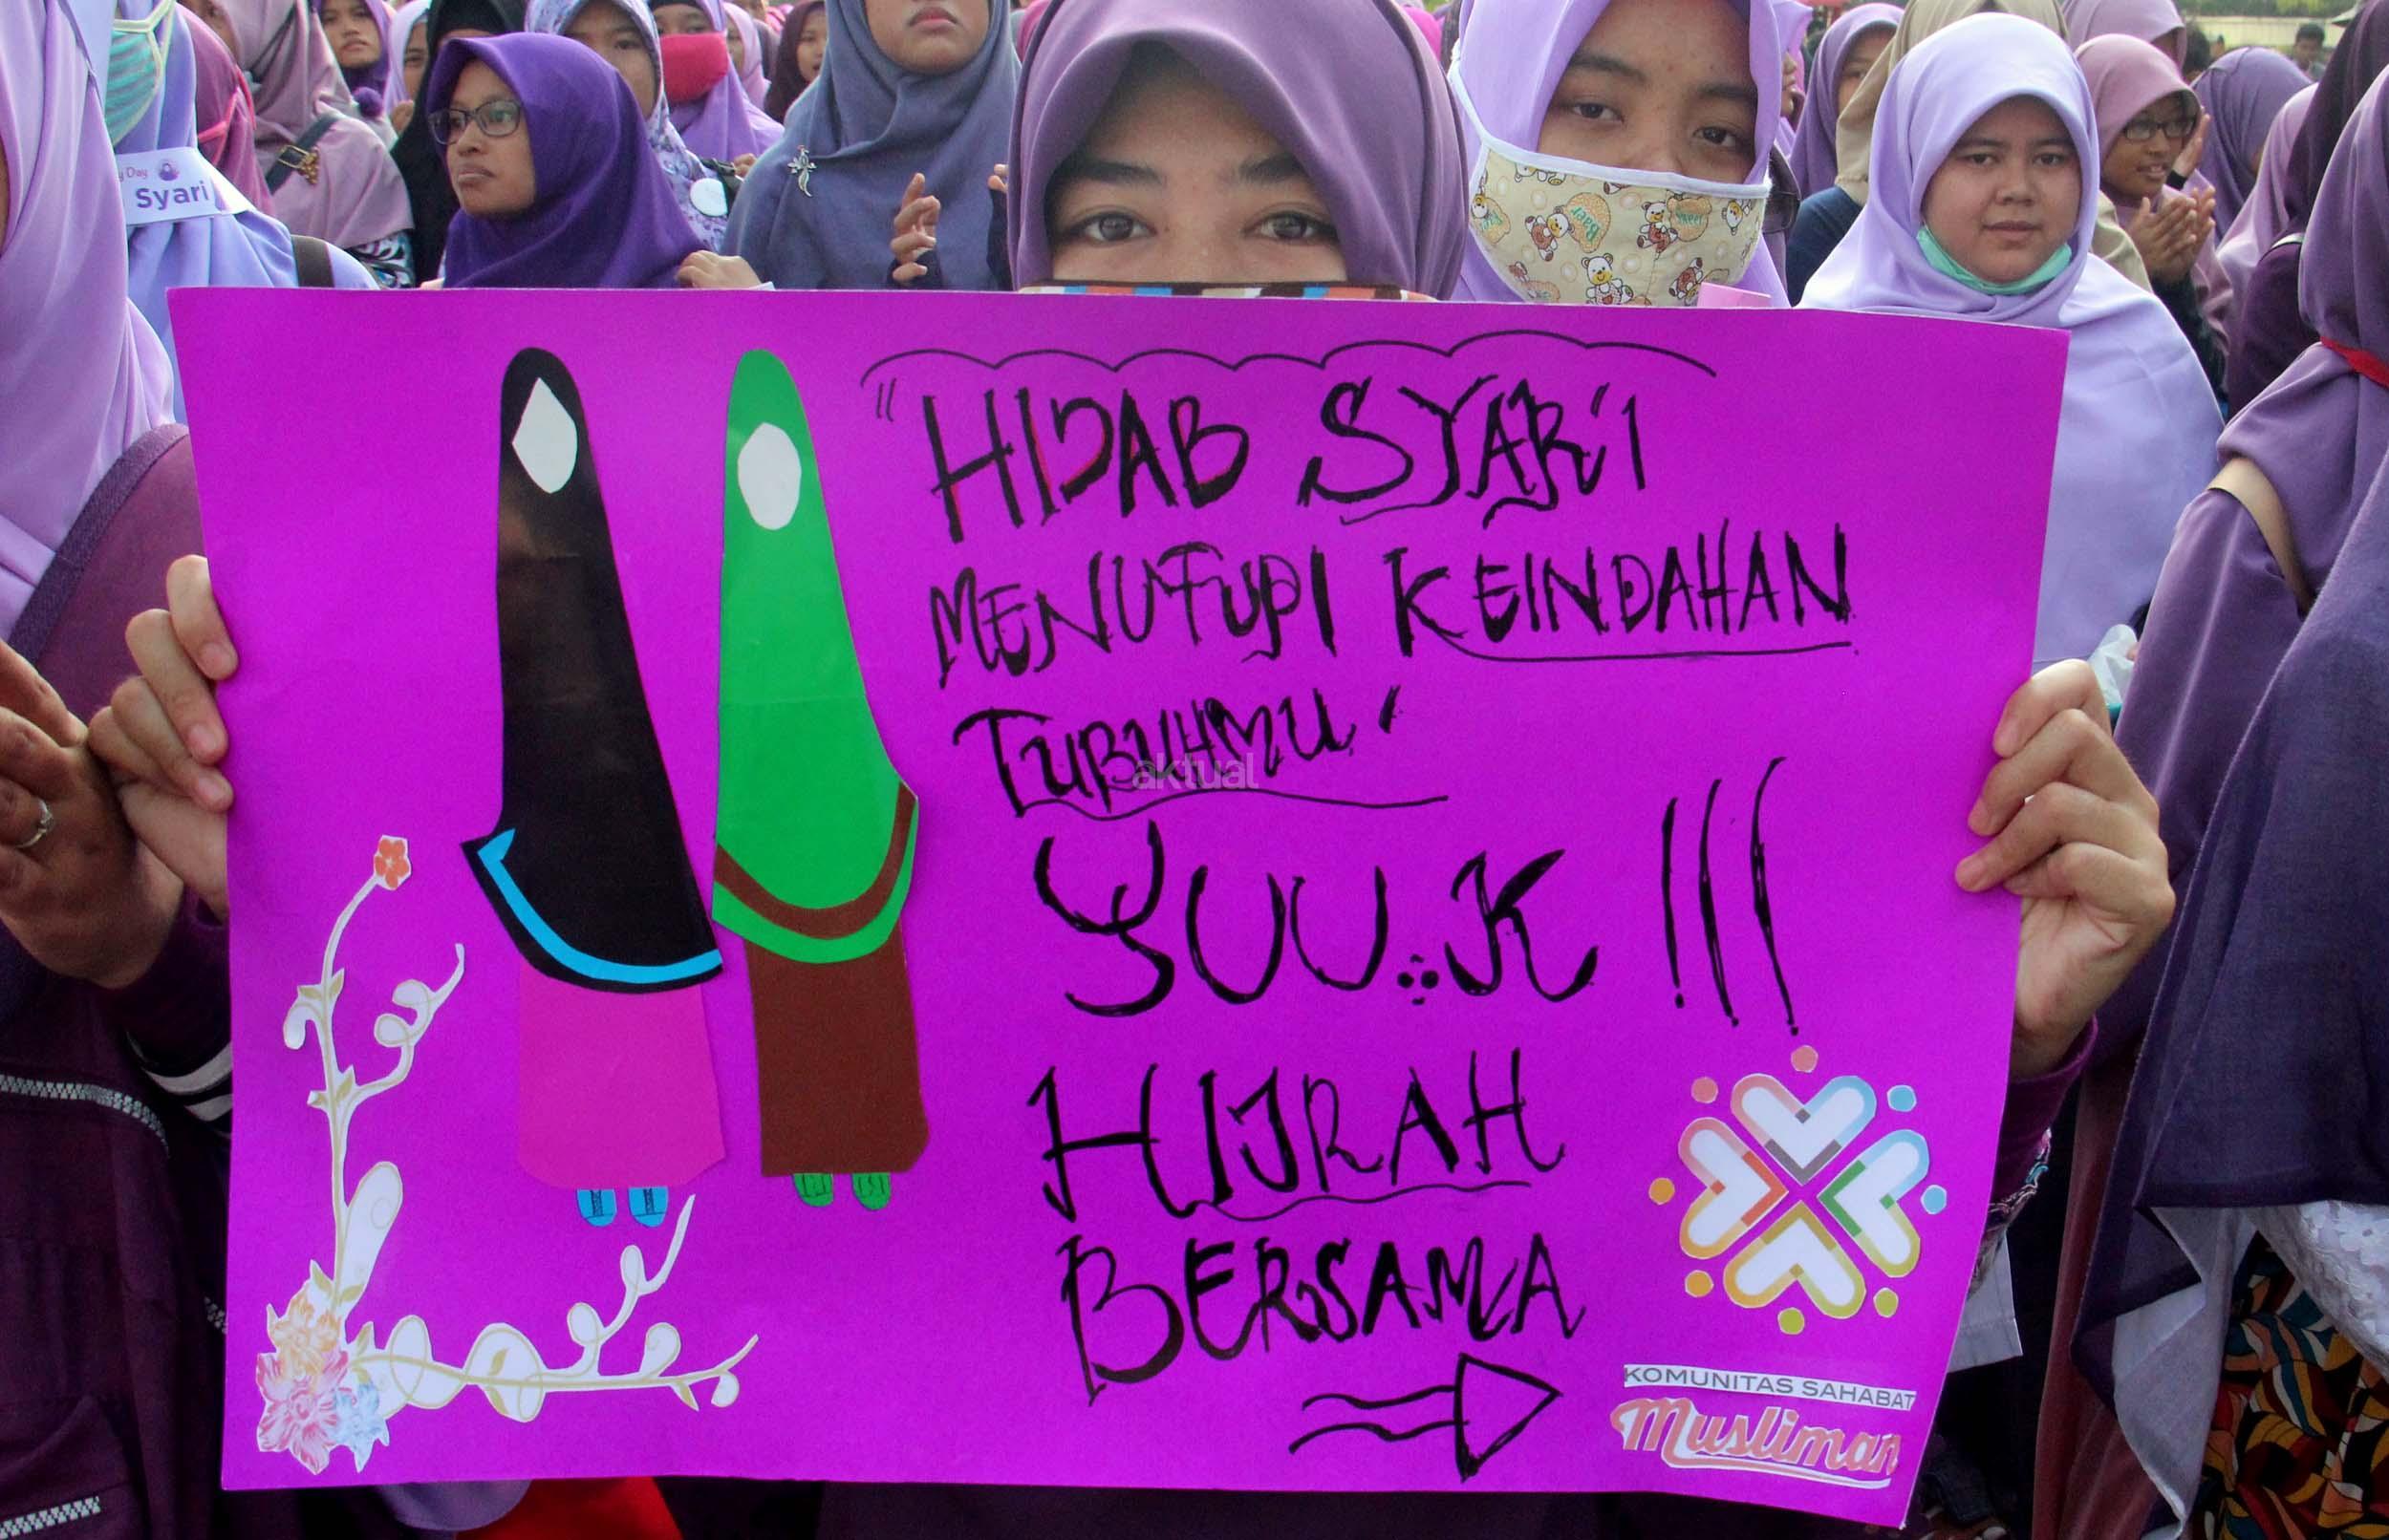 y Day
Syari
"HIJAB SYAR'I
MENUTUPI KEINDAHAN
TUBUHMU"
aktual
YUU..K !!!
HIJRAH
BERSAMA
KOMUNITAS SAHABAT
Musliman